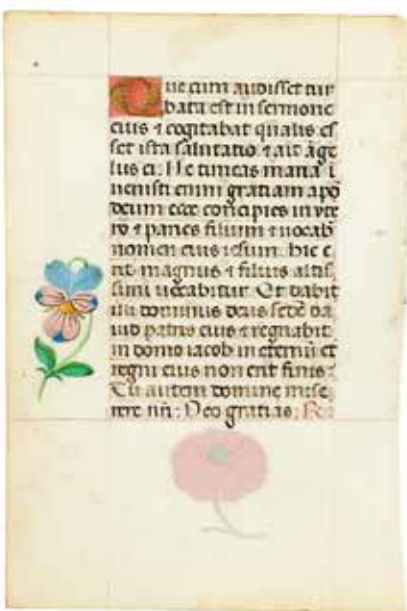 Que cum audisset tur
bata est in sermone
eius ⁊ cogitabat qualis es
set ista salutatio ⁊ ait āge
lus ei: Ne timeas maria i
uenisti enim gratiam apō
deum ecce concipies in vte
ro ⁊ paries filium ⁊ uocab
nomen eius iesum. hic e
rit magnus ⁊ filius altis
simi uocabitur. Et dabit
illi dominus deus sedē da
uid patris eius ⁊ regnabit
in domo iacob in eternū et
regni eius non erit finis
Tu autem domine mise
rere nr̄i: Deo gratias: R̄